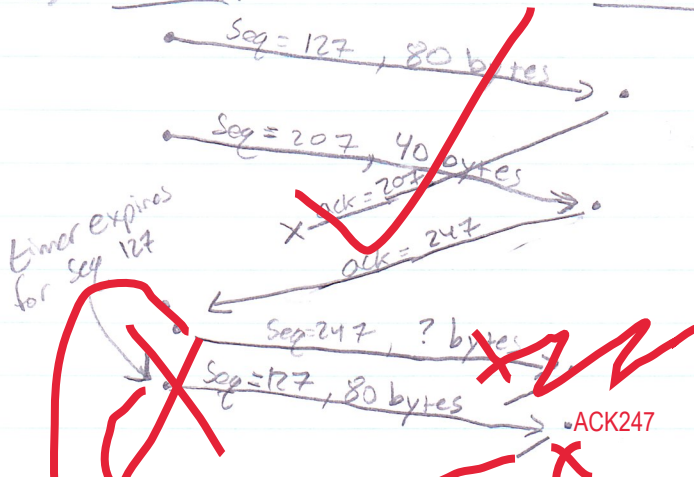 Seq = 127, 80 bytes
Seq = 207, 40 bytes
ack = 207
X
ack = 247
timer expires
for seq 127
Seq=247, ? bytes
Seq=127, 80 bytes
ACK247